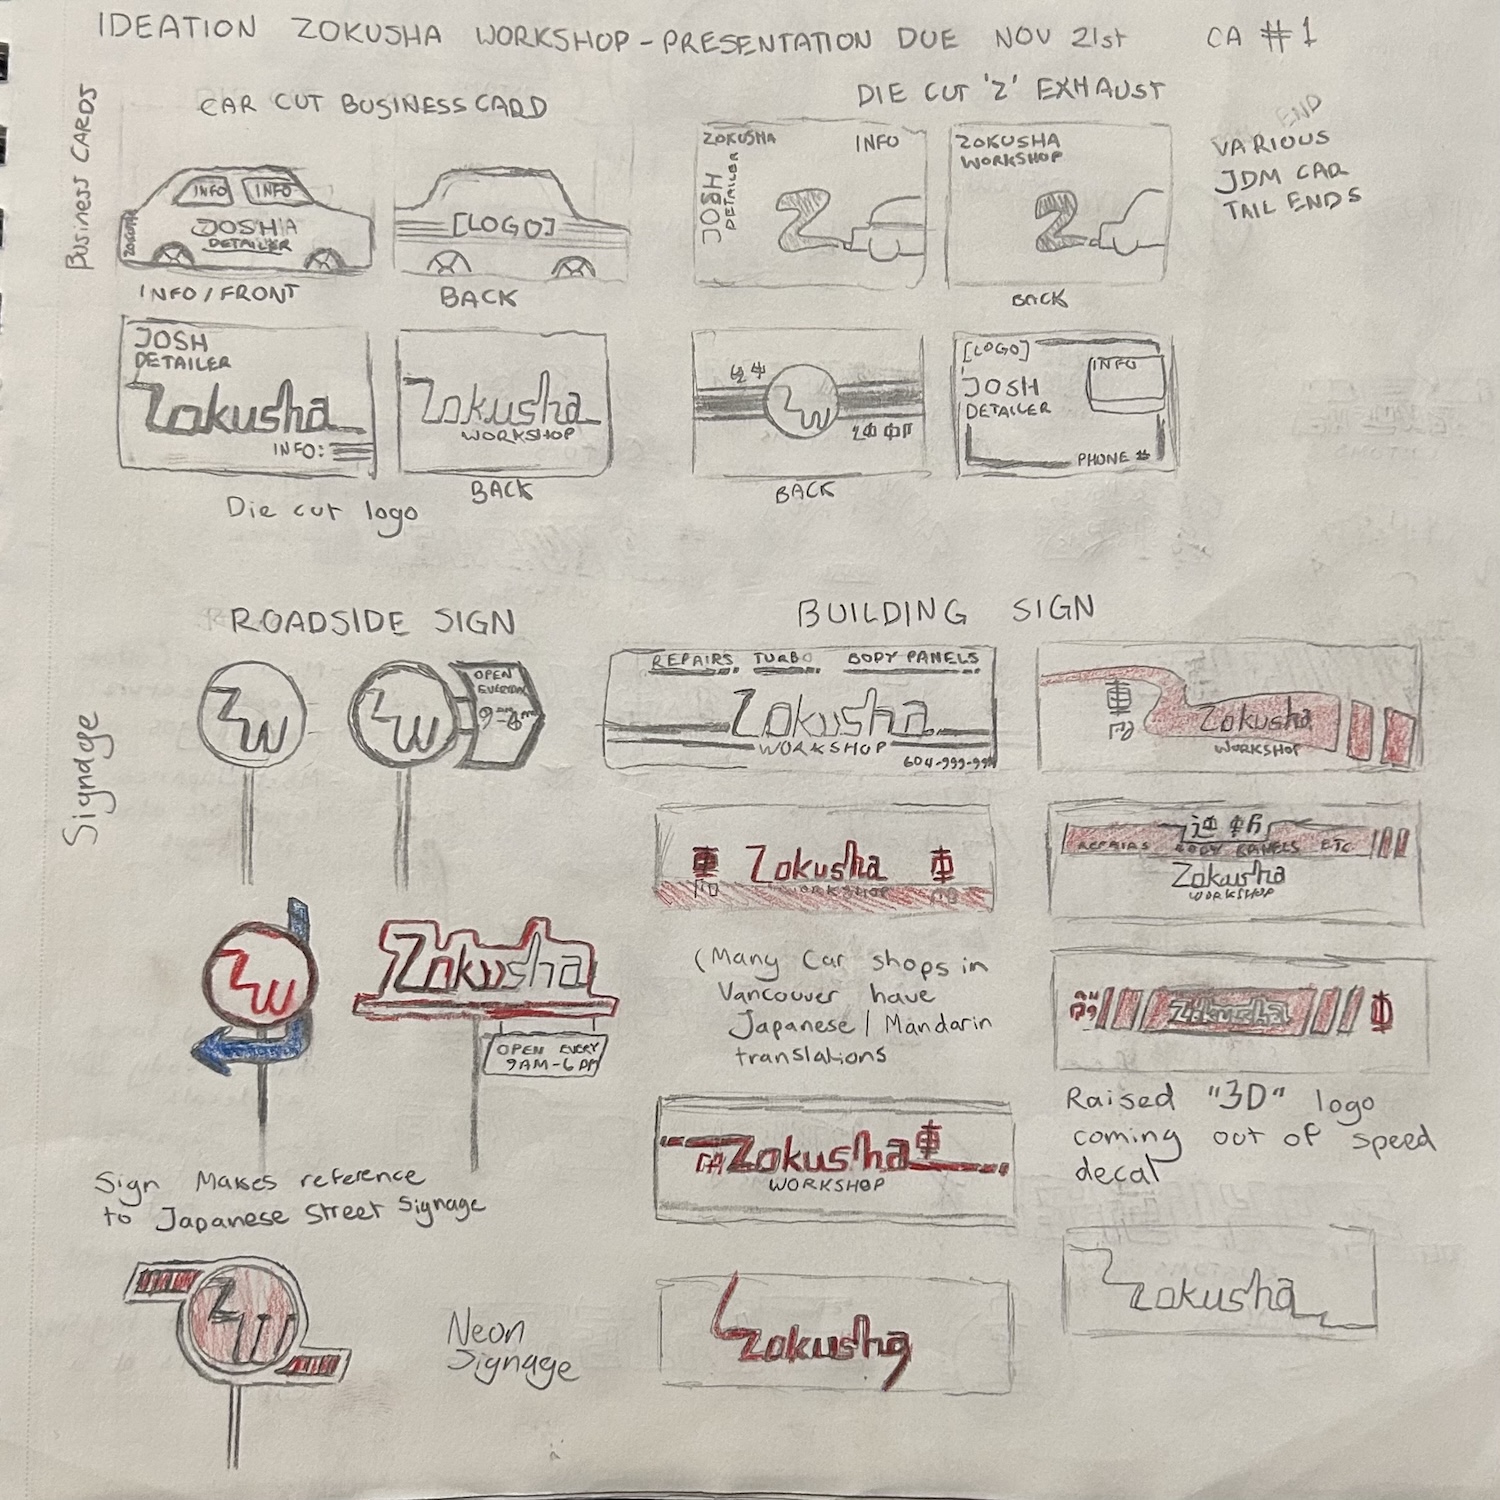 IDEATION ZOKUSHA WORKSHOP - PRESENTATION DUE NOV 21st CA #1
Business CARDS
CAR CUT BUSINESS CARD
INFO INFO
JOSH
DETAILER
INFO / FRONT
[LOGO]
BACK
DIE CUT 'Z' EXHAUST
ZOKUSHA INFO
JOSH
DETAILER
ZOKUSHA
WORKSHOP
BACK
END
VARIOUS
JDM CAR
TAIL ENDS
JOSH
DETAILER
Zokusha
INFO:
Zokusha
WORKSHOP
BACK
Die cut logo
ZW
BACK
[LOGO]
INFO
JOSH
DETAILER
PHONE #
Signdage
ROADSIDE SIGN
ZW
ZW
OPEN
EVERYDAY
ZW
Zokusha
OPEN EVERY
9AM-6PM
Sign Makes reference
to Japanese Street Signage
ZW
Neon
Signage
BUILDING SIGN
REPAIRS TURBO BODY PANELS
Zokusha
WORKSHOP
車
Zokusha
WORKSHOP
車 Zokusha 車
WORKSHOP
REPAIRS BODY PANELS ETC
Zokusha
WORKSHOP
(Many Car shops in
Vancouver have
Japanese / Mandarin
translations
Zokusha 車
Raised "3D" logo
coming out of speed
decal
Zokusha 車
WORKSHOP
Zokusha
Zokusha